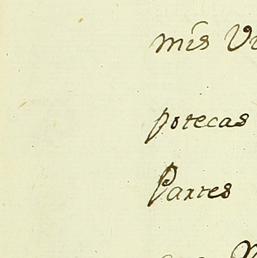 mis
potecas
Partes